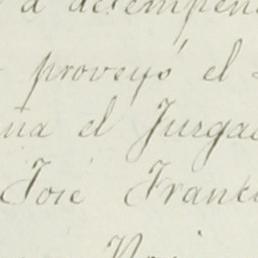 á desempeñ
proveyó el
na el Juzga
José Franc